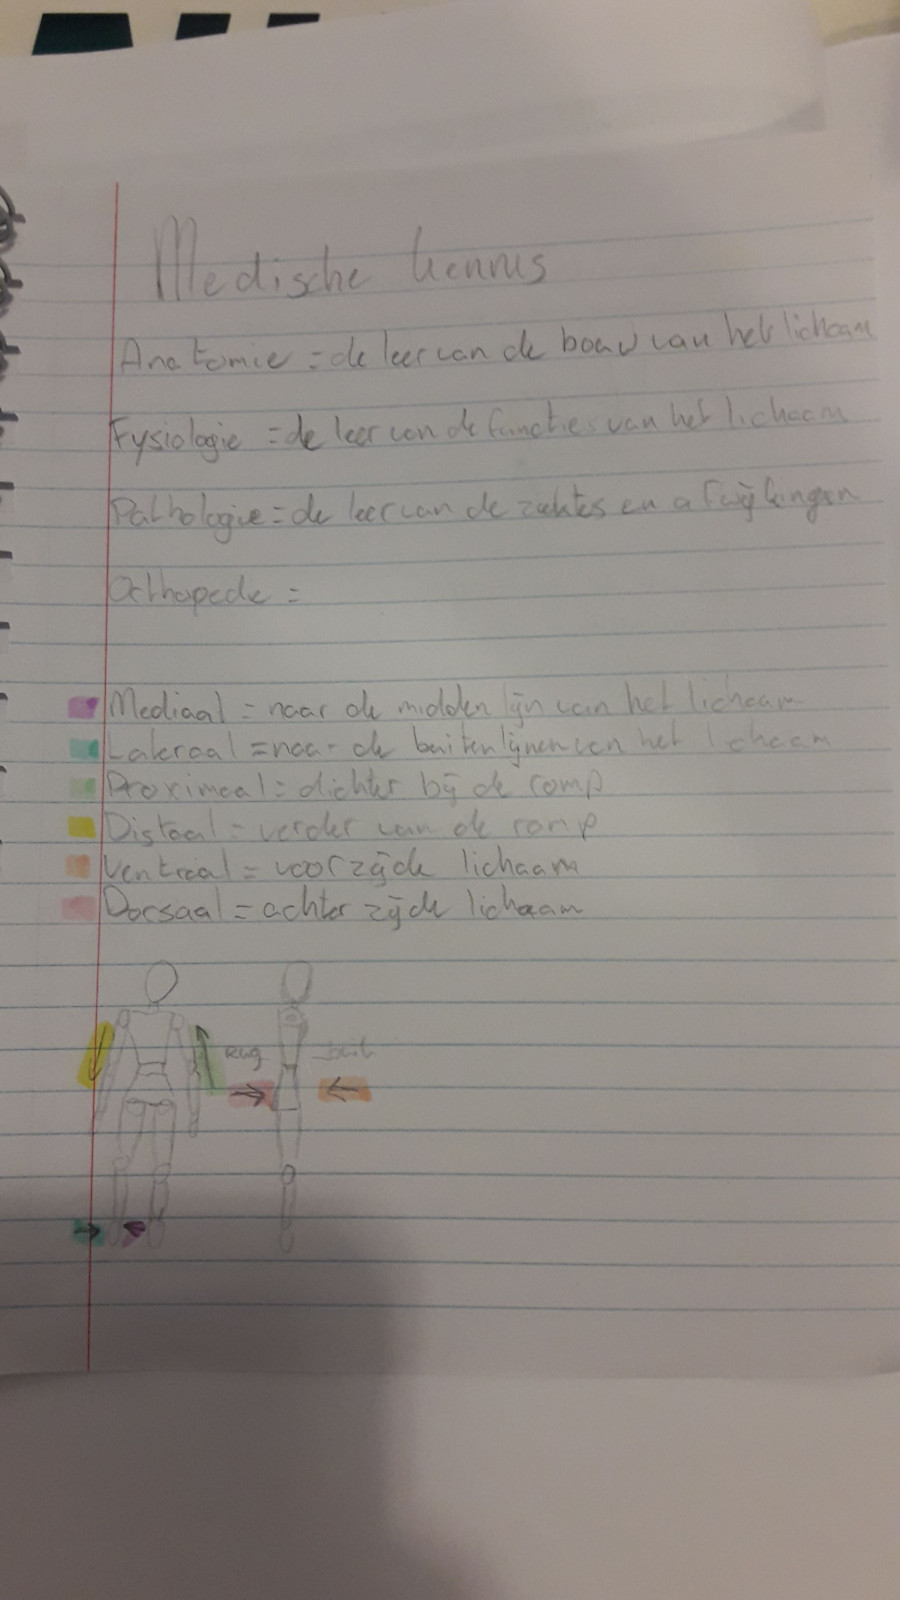 Medische kennis
Anatomie = de leer van de bouw van het lichaam
Fysiologie = de leer van de functies van het lichaam
Pathologie = de leer van de ziektes en afwijkingen
Orthopede =
Mediaal = naar de midden lijn van het lichaam
Lateraal = naar de buitenlijnen van het lichaam
Proximaal = dichter bij de romp
Distaal = verder van de romp
Ventraal = voorzijde lichaam
Dorsaal = achter zijde lichaam
Rug buik